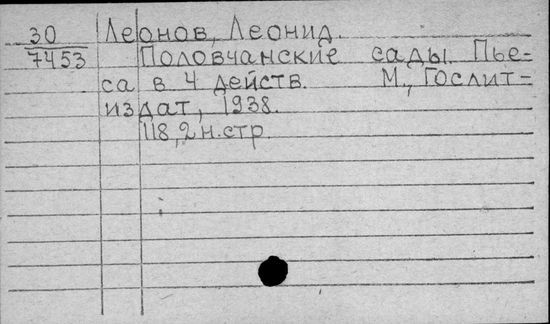 30 Леонов, Леонид.
7453 Половчанские сады. Пье=
са в 4 действ. М., Гослит=
издат, 1938.
118, 2 н. стр.